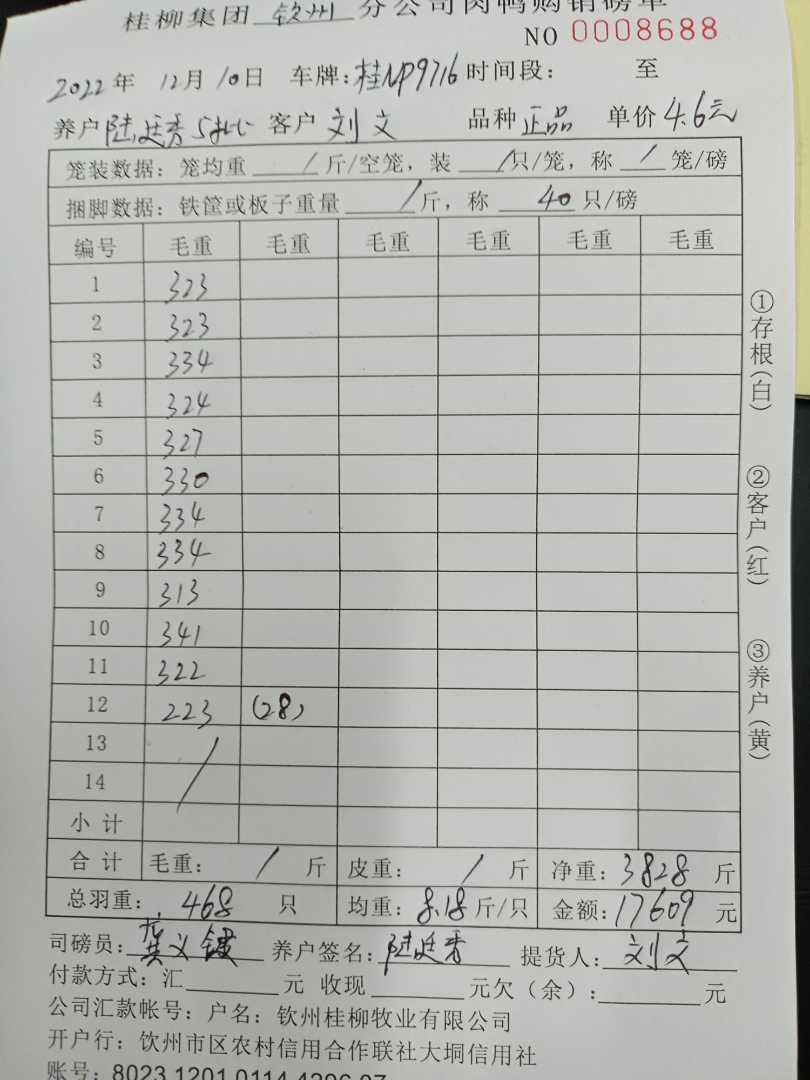 桂柳集团 钦州 分公司肉鸭购销磅单
NO 0008688
2022年 12月 10日 车牌:桂NP9716 时间段: 至
养户 陆廷秀 客户 刘文 品种 正品 单价 4.6元
笼装数据：笼均重 / 斤/空笼，装 / 只/笼，称 / 笼/磅
捆脚数据：铁筐或板子重量 / 斤，称 40 只/磅
编号 毛重 毛重 毛重 毛重 毛重 毛重
1 323
2 323
3 334
4 324
5 327
6 330
7 334
8 334
9 313
10 341
11 322
12 223 (28)
13 /
14
小计
合计 毛重： / 斤 皮重： / 斤 净重：3828 斤
总羽重： 468 只 均重：8.18 斤/只 金额：17609 元
司磅员： 龚义键 养户签名：陆廷秀 提货人：刘文
付款方式：汇 元 收现 元欠（余）： 元
公司汇款帐号：户名：钦州桂柳牧业有限公司
开户行：钦州市区农村信用合作联社大垌信用社
账号：8023 1201 0114 4296 97
①存根(白)
②客户(红)
③养户(黄)